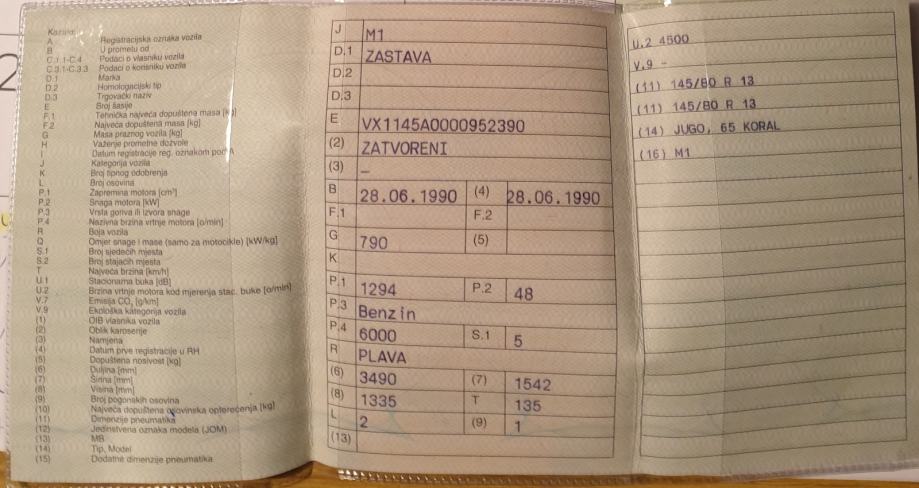 Kazalo:
A Registracijska oznaka vozila
B U prometu od
C.1.1-C.4 Podaci o vlasniku vozila
C.3.1-C.3.3 Podaci o korisniku vozila
D.1 Marka
D.2 Homologacijski tip
D.3 Trgovački naziv
E Broj šasije
F.1 Tehnička najveća dopuštena masa [kg]
F.2 Najveća dopuštena masa [kg]
G Masa praznog vozila [kg]
H Važenje prometne dozvole
I Datum registracije reg. oznakom pod A
J Kategorija vozila
K Broj tipnog odobrenja
L Broj osovina
P.1 Zapremina motora [cm³]
P.2 Snaga motora [kW]
P.3 Vrsta goriva ili izvora snage
P.4 Nazivna brzina vrtnje motora [o/min]
R Boja vozila
Q Omjer snage i mase (samo za motocikle) [kW/kg]
S.1 Broj sjedećih mjesta
S.2 Broj stajaćih mjesta
T Najveća brzina [km/h]
U.1 Stacionarna buka [dB]
U.2 Brzina vrtnje motora kod mjerenja stac. buke [o/min]
V.7 Emisija CO₂ [g/km]
V.9 Ekološka kategorija vozila
(1) OIB vlasnika vozila
(2) Oblik karoserije
(3) Namjena
(4) Datum prve registracije u RH
(5) Dopuštena nosivost [kg]
(6) Duljina [mm]
(7) Širina [mm]
(8) Visina [mm]
(9) Broj pogonskih osovina
(10) Najveća dopuštena osovinska opterećenja [kg]
(11) Dimenzije pneumatika
(12) Jedinstvena oznaka modela (JOM)
(13) MB
(14) Tip, Model
(15) Dodatne dimenzije pneumatika
J M1
D.1 ZASTAVA
D.2
D.3
E VX1145A0000952390
(2) ZATVORENI
(3) –
B 28.06.1990 (4) 28.06.1990
F.1 F.2
G 790 (5)
K
P.1 1294 P.2 48
P.3 Benzin
P.4 6000 S.1 5
R PLAVA
(6) 3490 (7) 1542
(8) 1335 T 135
L 2 (9) 1
(13)
U.2 4500
V.9 -
(11) 145/80 R 13
(11) 145/80 R 13
(14) JUGO, 65 KORAL
(16) M1